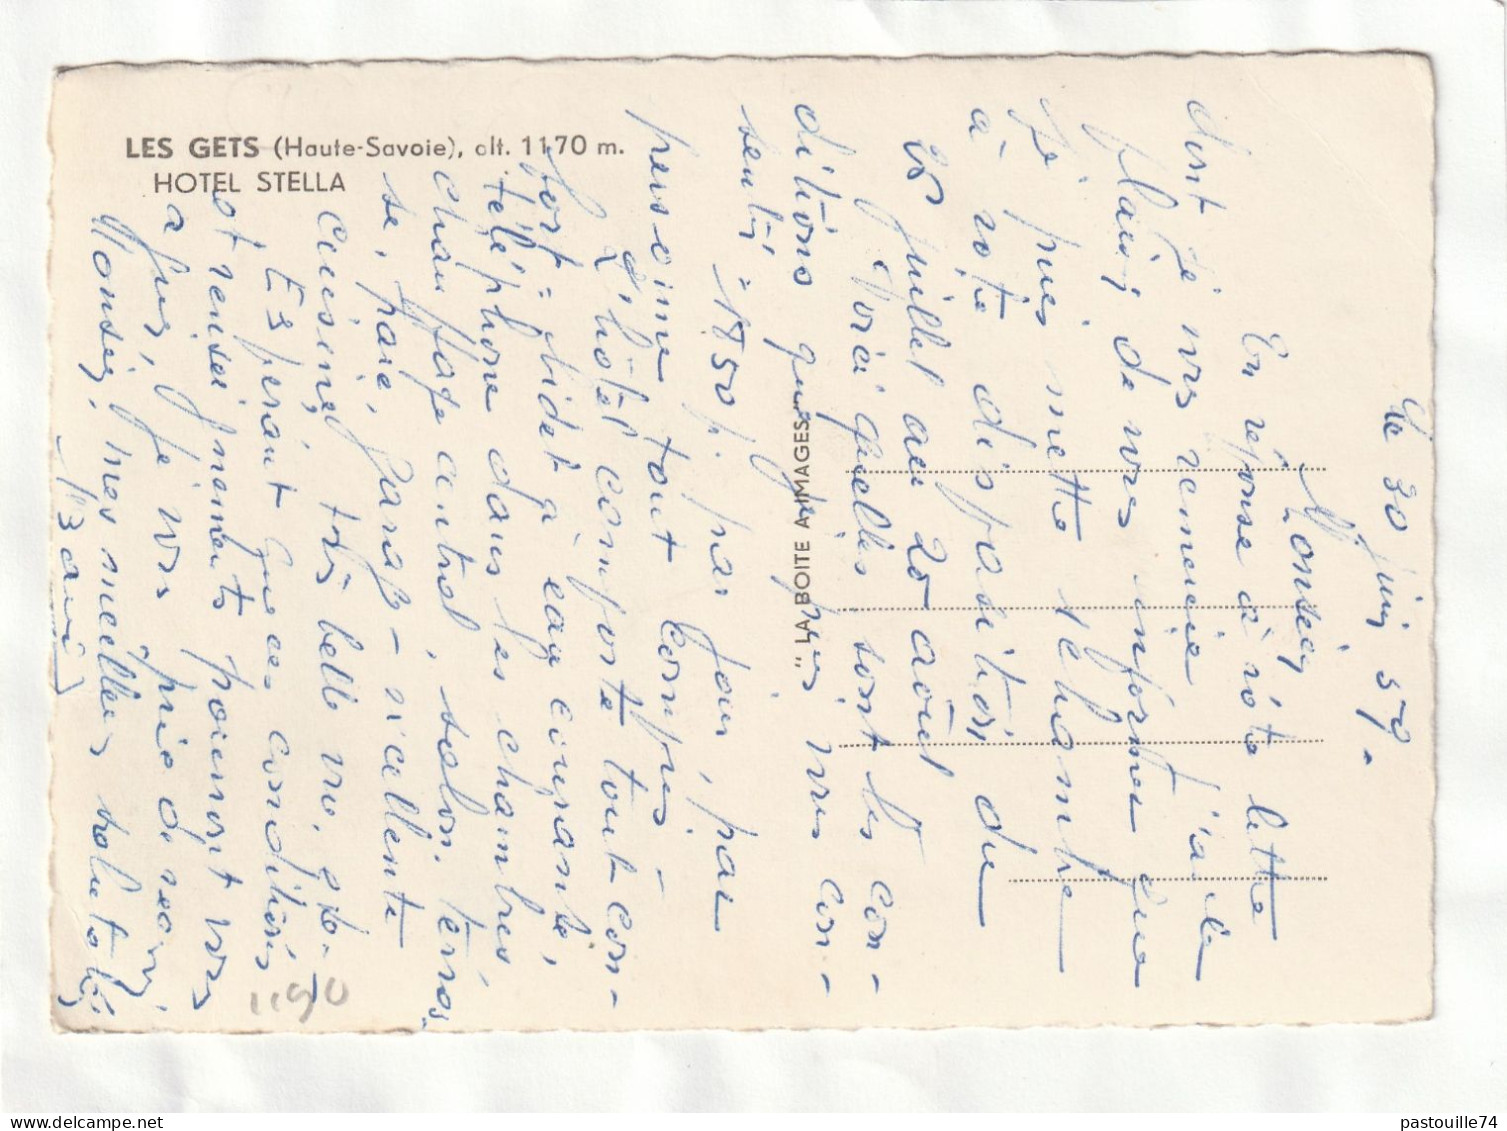 LES GETS (Haute-Savoie), alt. 1170 m.
HOTEL STELLA
"LA BOITE A IMAGES"
Le 30 juin 59.
Monsieur
En réponse à vôtre lettre
dont je vous remercie j'ai le
plaisir de vous informer que
je puis mettre 1 chambre
à vôtre disposition du
25 juillet au 20 août
Voici quelles sont les con-
ditions que je puis vous con-
sentir 1850 f. par jour, par
personne tout compris -
L'hôtel comporte tout con-
fort = bidet à eau courante,
téléphone dans les chambres,
chauffage central, salon, terras-
se, parc, garage - excellente
cuisine, très belle vue, etc -
Espérant que ces conditions
et renseignements pourront vous
agréer, je vous prie de recevoir,
Monsieur, mes meilleures salutations
1190
pastouille74